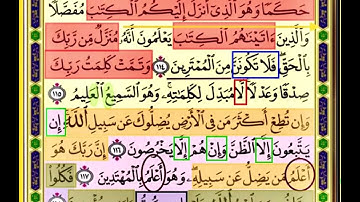 حَكَمًا وَهُوَ ٱلَّذِىٓ أَنزَلَ إِلَيْكُمُ ٱلْكِتَٰبَ مُفَصَّلًا
وَٱلَّذِينَ ءَاتَيْنَٰهُمُ ٱلْكِتَٰبَ يَعْلَمُونَ أَنَّهُۥ مُنَزَّلٌ مِّن رَّبِّكَ
بِٱلْحَقِّ فَلَا تَكُونَنَّ مِنَ ٱلْمُمْتَرِينَ ١١٤ وَتَمَّتْ كَلِمَتُ رَبِّكَ
صِدْقًا وَعَدْلًا لَّا مُبَدِّلَ لِكَلِمَٰتِهِۦ وَهُوَ ٱلسَّمِيعُ ٱلْعَلِيمُ ١١٥
وَإِن تُطِعْ أَكْثَرَ مَن فِى ٱلْأَرْضِ يُضِلُّوكَ عَن سَبِيلِ ٱللَّهِ إِن
يَتَّبِعُونَ إِلَّا ٱلظَّنَّ وَإِنْ هُمْ إِلَّا يَخْرُصُونَ ١١٦ إِنَّ رَبَّكَ هُوَ
أَعْلَمُ مَن يَضِلُّ عَن سَبِيلِهِۦ وَهُوَ أَعْلَمُ بِٱلْمُهْتَدِينَ ١١٧ فَكُلُوا۟